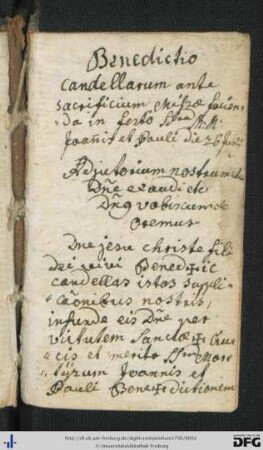 Benedictio
candellarum ante
sacrificium Missæ facien¬
da in festo SS.rum M.M.
Joañis et Pauli die 26 Junij
Adjutorium nostrum etc
Dñe exaudi etc
Dñg vobiscum etc
Oremus
Dne jesu christe fili
dei vivi Bened✠ic
candellas istas suppli¬
catõnibus nostris,
infunde eis Dñe per
virtutem Sanctæ ✠ Cru¬
cis et merito SS.rum Mar¬
tÿrum Joannis et
Pauli Bene✠dictionem
http://dl.ub.uni-freiburg.de/diglit/compendium1750/0053
© Universitätsbibliothek Freiburg
DFG